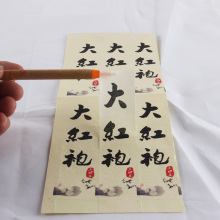 大紅袍
大紅袍
大紅袍
大紅袍
大紅袍
大紅袍